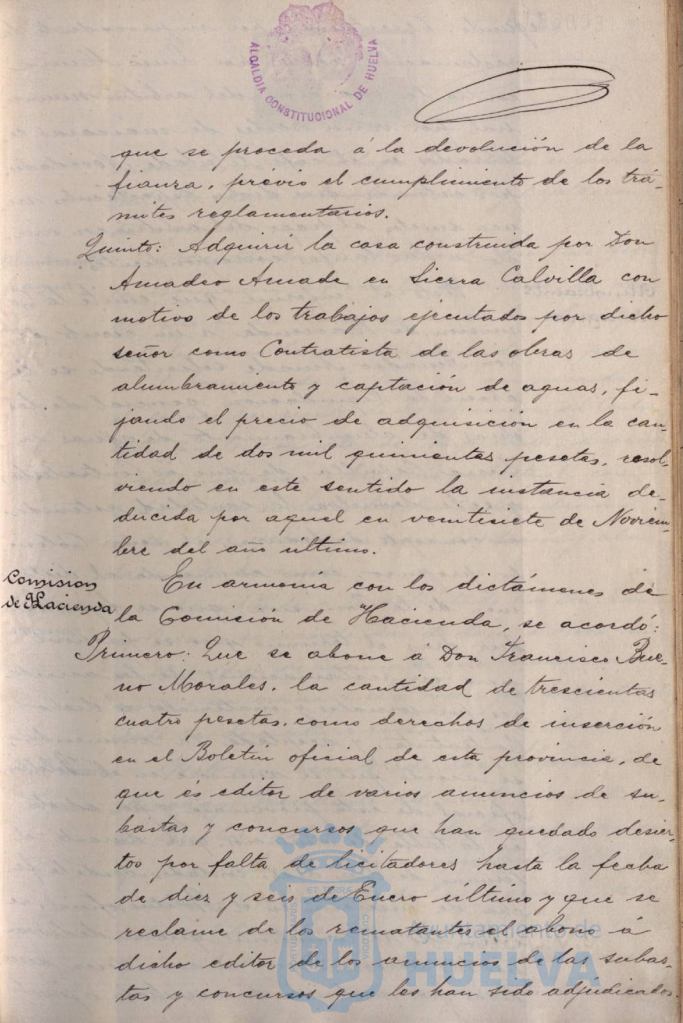 ALCALDIA CONSTITUCIONAL DE HUELVA
que se proceda á la devolución de la
fianza, prévio el cumplimiento de los trá-
mites reglamentarios.
Quinto: Adquirir la casa construida por Don
Amadeo Amade en Sierra Calvilla con
motivo de los trabajos ejecutados por dicho
señor como Contratista de las obras de
alumbramiento y captación de aguas, fi-
jando el precio de adquisición en la can-
tidad de dos mil quinientas pesetas, resol-
viendo en este sentido la instancia de-
ducida por aquel en veintisiete de Noviem-
bre del año último.
Comision
de Hacienda
En armonía con los dictámenes de
la Comisión de Hacienda, se acordó:
Primero: Que se abone á Don Francisco Bue-
no Morales, la cantidad de trescientas
cuatro pesetas, como derechos de inserción
en el Boletin oficial de esta provincia, de
que es editor de varios anuncios de su-
bastas y concursos que han quedado desier-
tos por falta de licitadores hasta la fecha
de diez y seis de Enero último y que se
reclame de los rematantes el abono á
dicho editor de los anuncios de las subas-
tas y concursos que les han sido adjudicados.
Ayuntamiento de
HUELVA